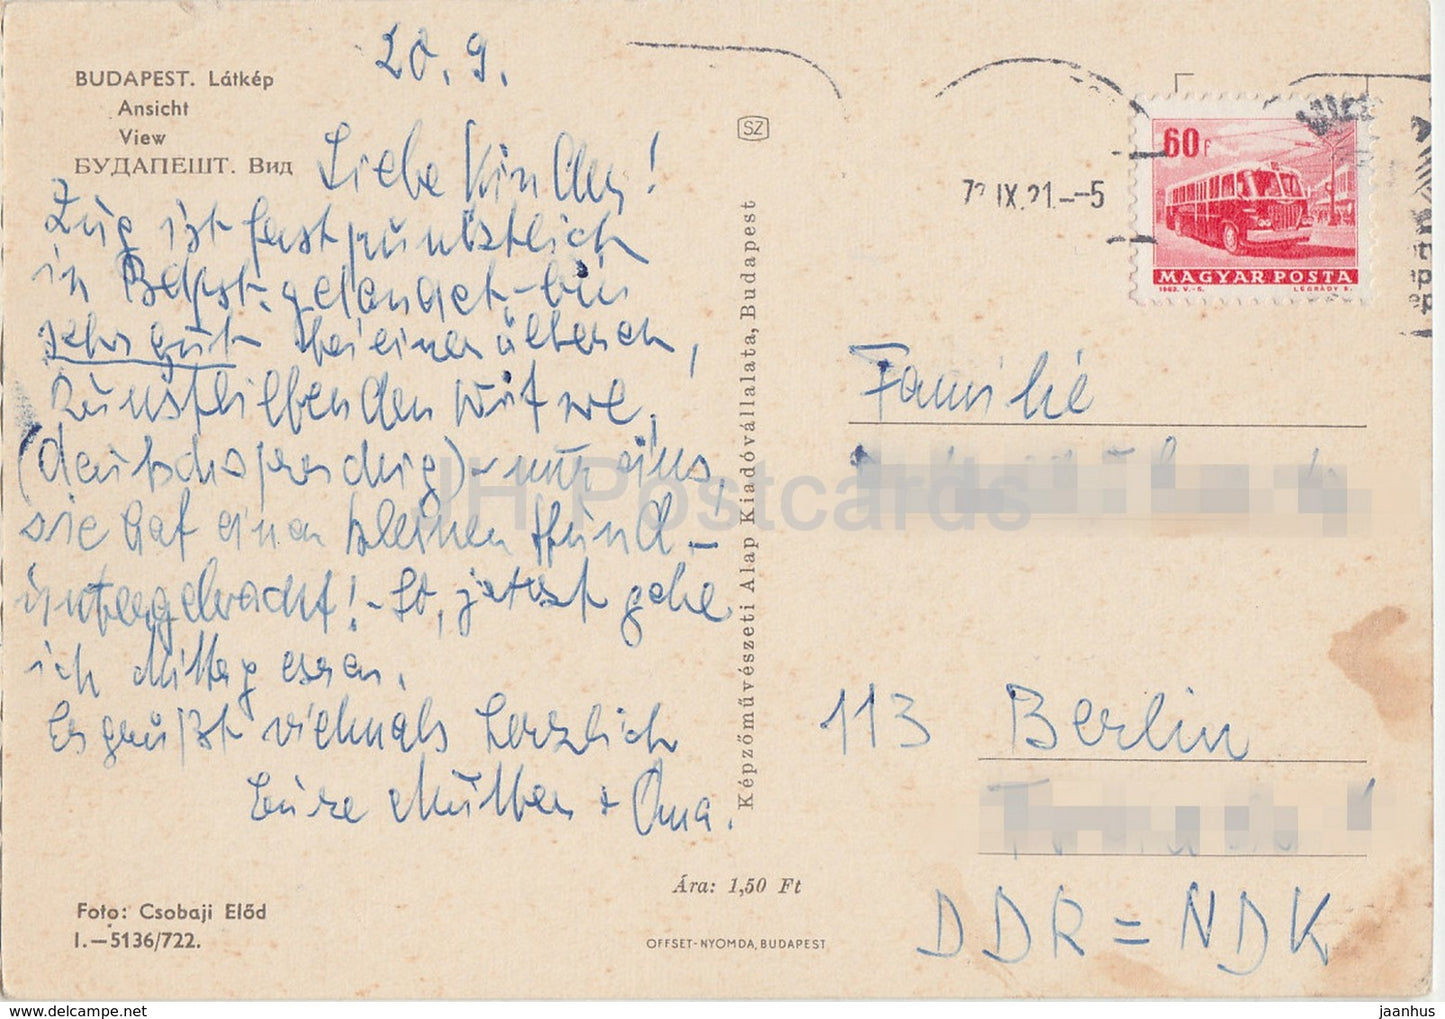 BUDAPEST. Látkép
Ansicht
View
БУДАПЕШТ. Вид
20. 9.
Liebe Kinder!
Zug ist fast pünktlich
in Bdpst. gelandet, bin
sehr gut bei einer älteren,
kunstliebenden Witwe,
(deutschsprachig) - nur eins,
sie hat einen kleinen Hund -
untergebracht! - So, jetzt gehe
ich Mittag essen.
Es grüßt vielmals herzlich
Eure Mutter + Oma.
Foto: Csobaji Előd
I.—5136/722.
SZ
Képzőművészeti Alap Kiadóvállalata, Budapest
Ára: 1,50 Ft
OFFSET-NYOMDA, BUDAPEST
IX. 21.-5
60 F
MAGYAR POSTA
1963. V.-E.
LÉGRÁDY S.
Familie
113 Berlin
DDR = NDK
JH Postcards
www.delcampe.net
jaanhus